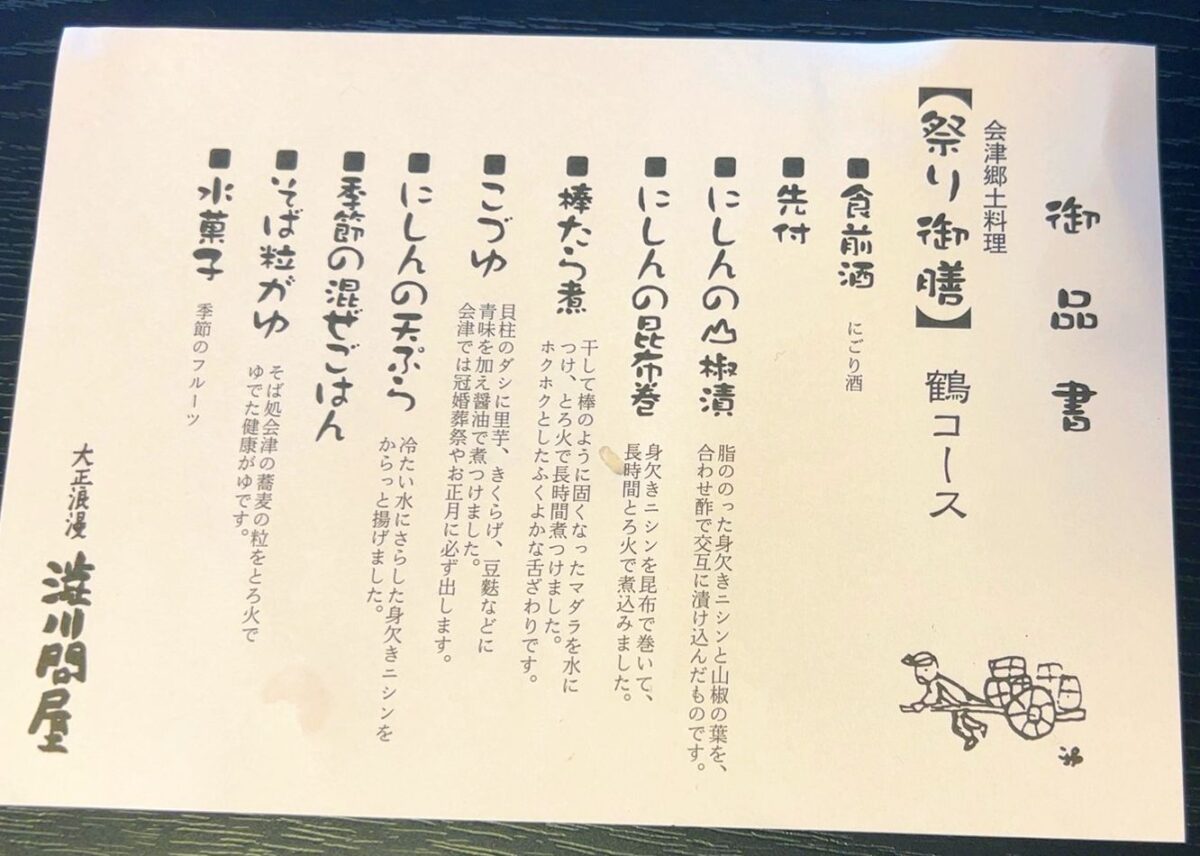 御品書
会津郷土料理
【祭り御膳】鶴コース
■食前酒 にごり酒
■先付
■にしんの山椒漬
脂ののった身欠きニシンと山椒の葉を、
合わせ酢で交互に漬け込んだものです。
■にしんの昆布巻
身欠きニシンを昆布で巻いて、
長時間とろ火で煮込みました。
■棒たら煮
干して棒のように固くなったマダラを水に
つけ、とろ火で長時間煮つけました。
ホクホクとしたふくよかな舌ざわりです。
■こづゆ
貝柱のダシに里芋、きくらげ、豆麩などに
青味を加え醤油で煮つけました。
会津では冠婚葬祭やお正月に必ず出します。
■にしんの天ぷら
冷たい水にさらした身欠きニシンを
からっと揚げました。
■季節の混ぜごはん
■そば粒がゆ
そば処会津の蕎麦の粒をとろ火で
ゆでた健康がゆです。
■水菓子 季節のフルーツ
大正浪漫 渋川問屋